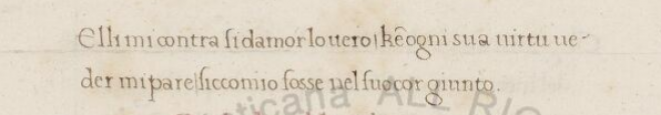 Elli mi contra si damor lo uero | kēogni sua uirtu ue-
der mi pare | siccomio fosse nel suo cor giunto.
aticana